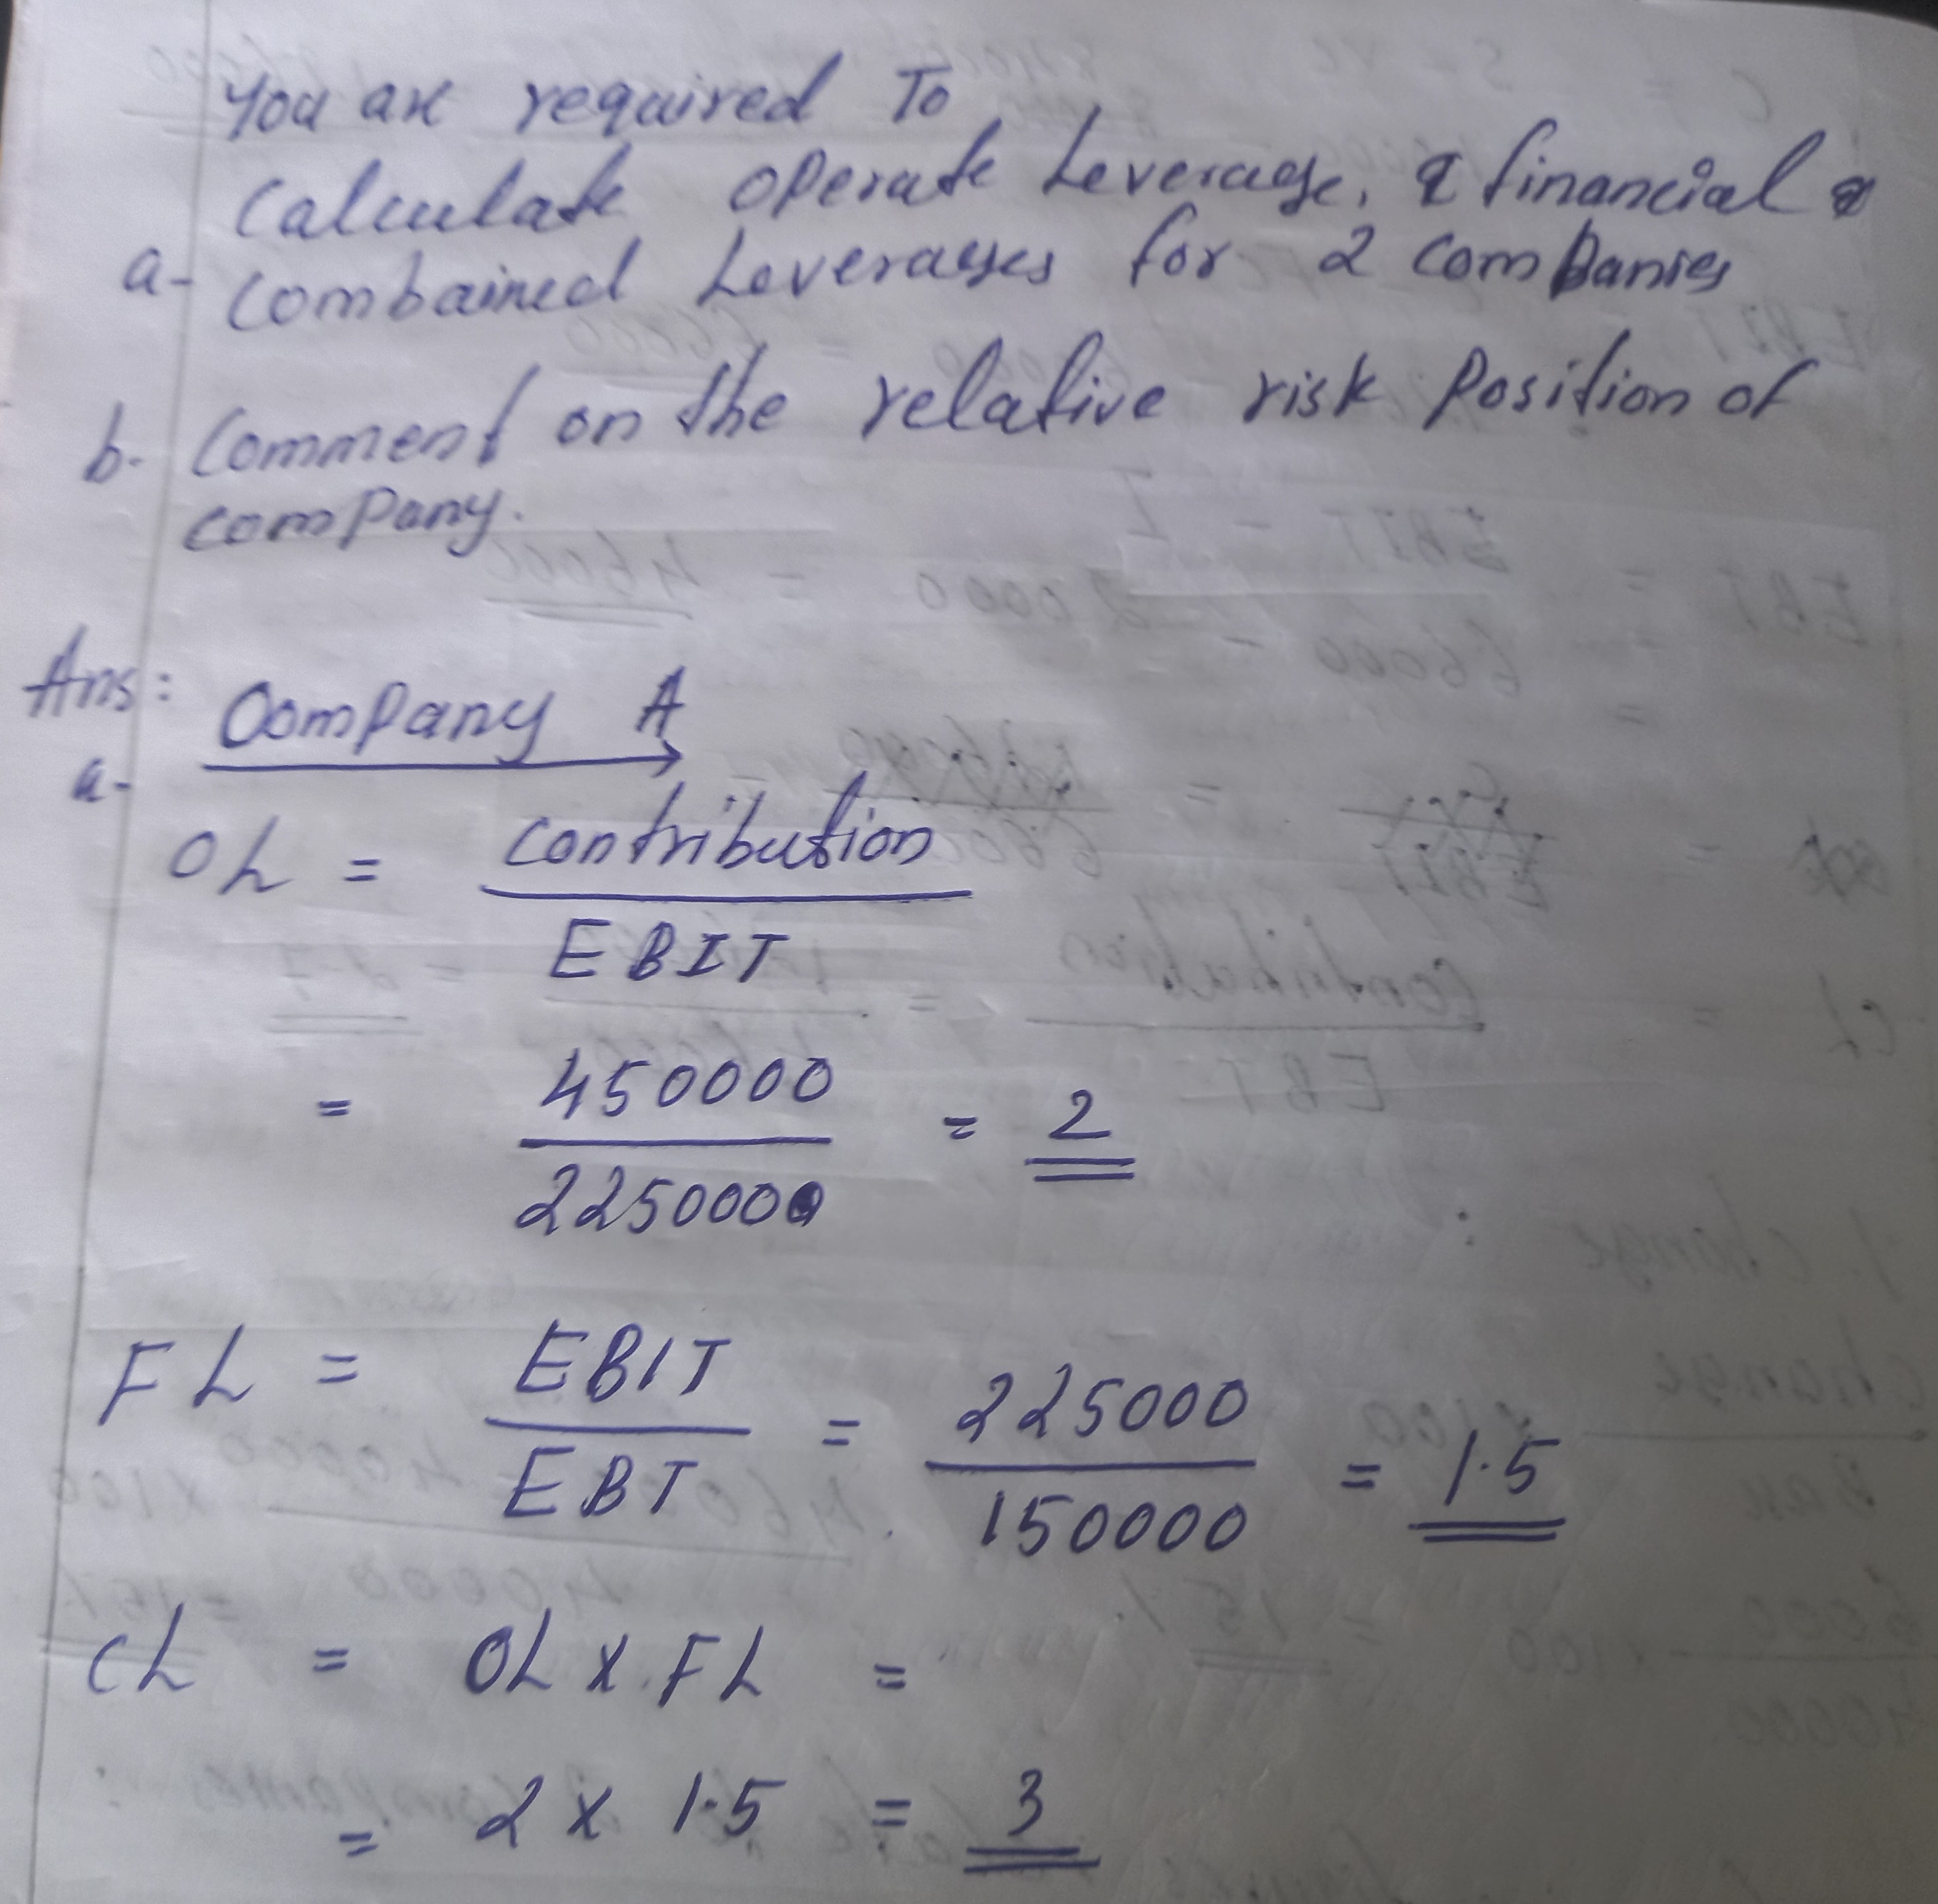 You are required To
Calculate operate Leverage, & financial &
a- Combained Leverages for 2 Companies
b. Comment on the relative risk Position of
company.
Ans: Company A
a-
OL = Contribution
EBIT
= 450000 = 2
225000
FL = EBIT = 225000 = 1.5
EBT 150000
CL = OL X FL =
= 2 X 1.5 = 3